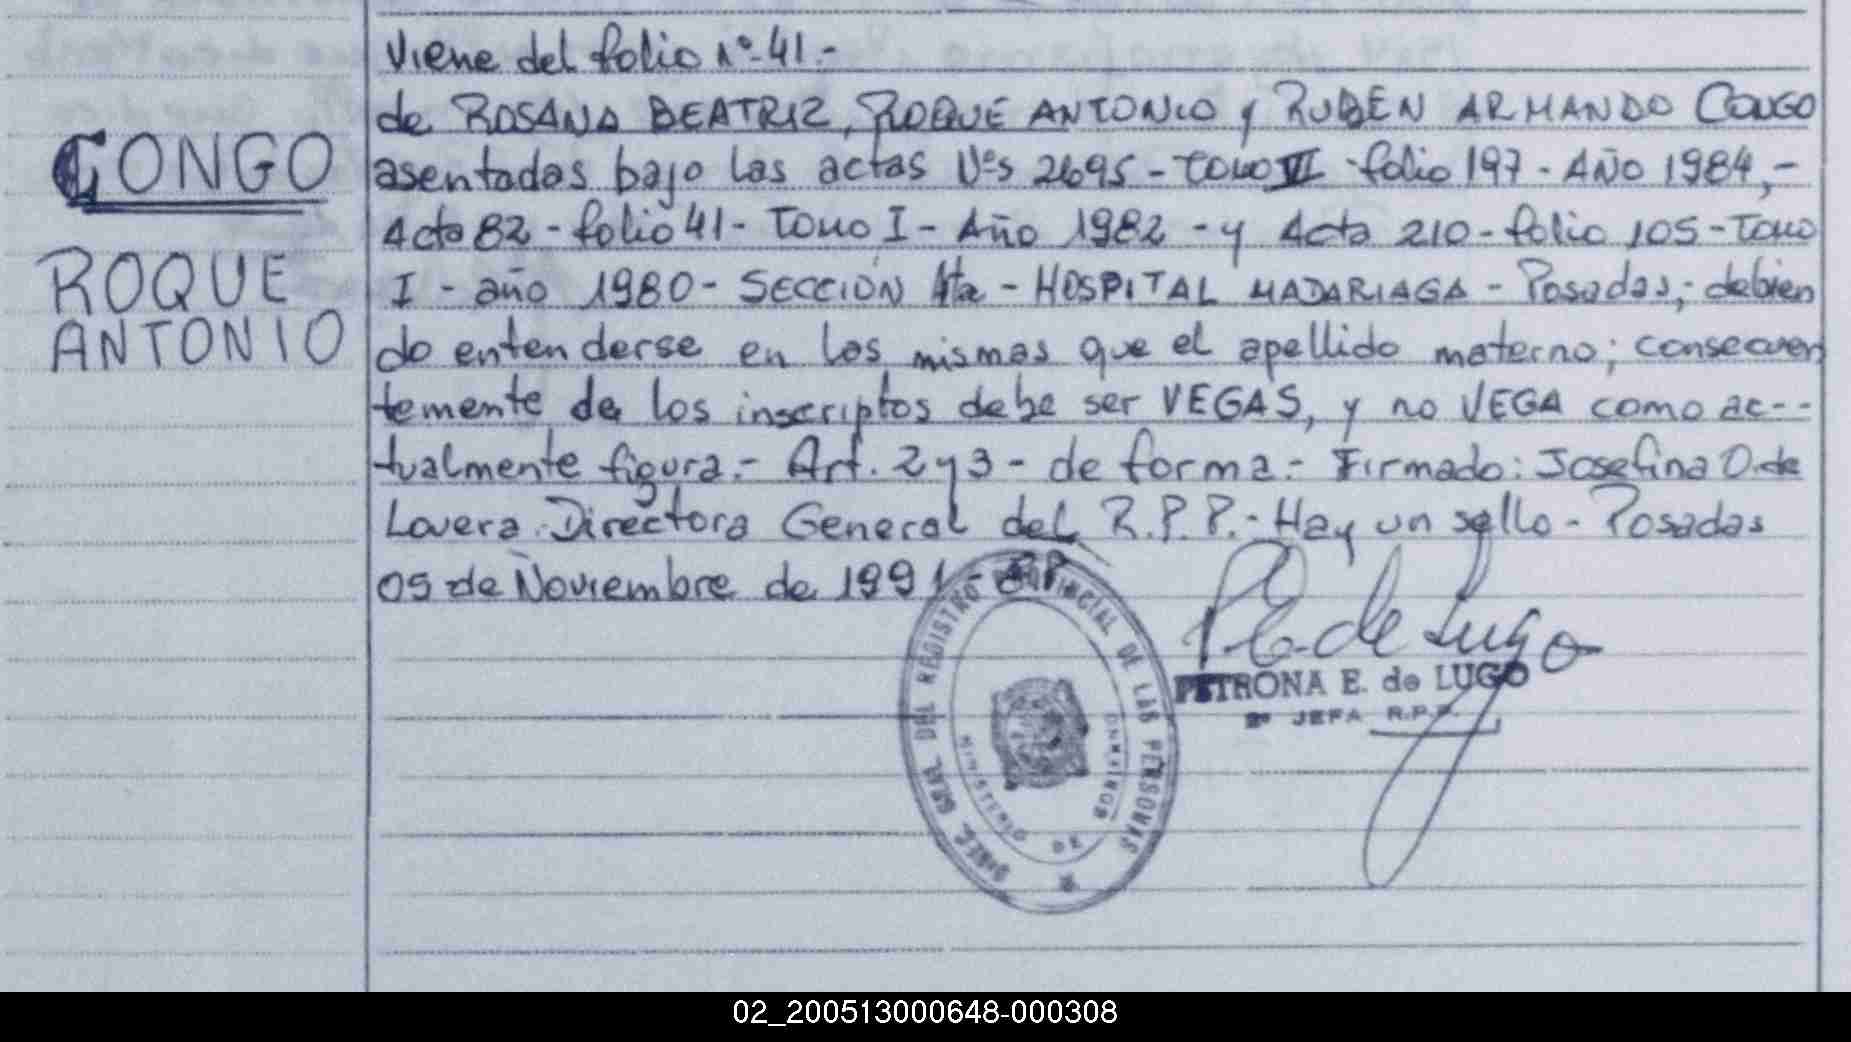 Viene del folio Nº 41.-
de ROSANA BEATRIZ, ROQUE ANTONIO y RUBEN ARMANDO CONGO
CONGO
asentadas bajo las actas Nºs 2695 - tomo VII folio 197 - AÑO 1984,-
Acta 82 - folio 41 - Tomo I - Año 1982 - y Acta 210 - folio 105 - Tomo
ROQUE
I - año 1980 - SECCIÓN 4ta - HOSPITAL MADARIAGA - Posadas; debien
ANTONIO
do entenderse en las mismas que el apellido materno; consecuen
temente de los inscriptos debe ser VEGAS, y no VEGA como ac--
tualmente figura.- Art. 2 y 3 - de forma.- Firmado: Josefina O. de
Lovera. Directora General del R.P.P.- Hay un sello - Posadas
05 de Noviembre de 1991.-
P.E. de Lugo
PETRONA E. de LUGO
JEFA R.P.P.
DIREC. GRAL. DEL REGISTRO PROVINCIAL DE LAS PERSONAS
MINISTERIO DE GOBIERNO
02_200513000648-000308